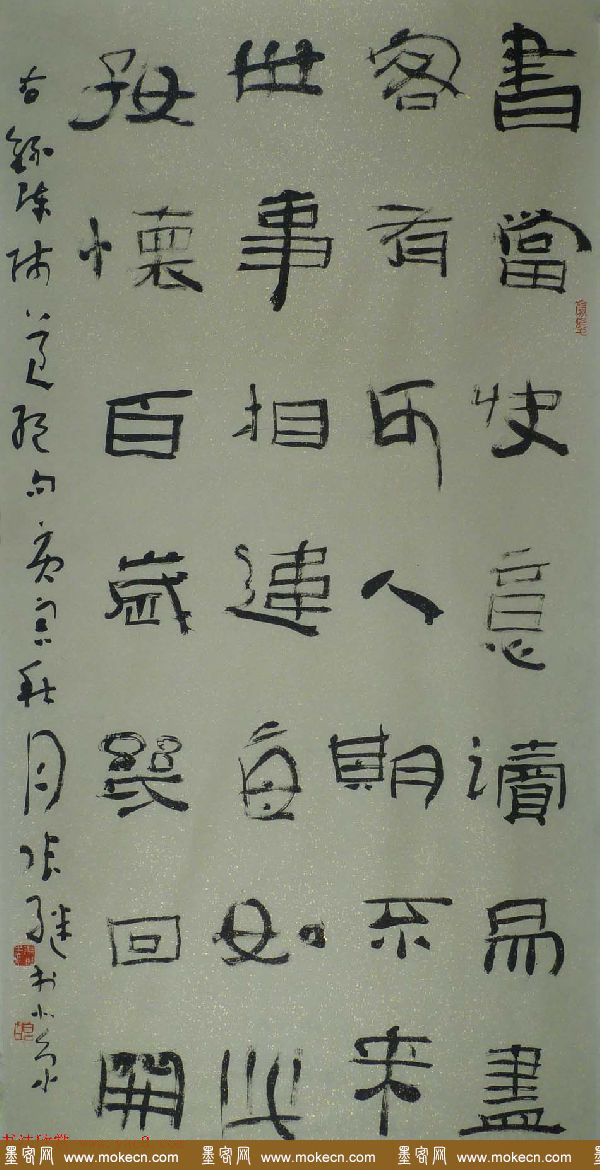 書當快意讀易盡
客有可人期不來
世事相違每如此
好懷百歲幾回開
右錄陳師道絕句庚寅秋月張繼书
墨客网 www.mokecn.com 墨客网 www.mokecn.com 墨客网 www.mokecn.com